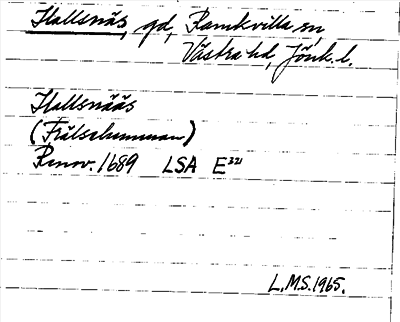 Hallsnäs, gd, Ramkvilla sn,
Västra hd, Jönk. l.
Hallsnääs
(Frälsehemman)
Renov. 1689 LSA E³²¹
L.M.S. 1965.